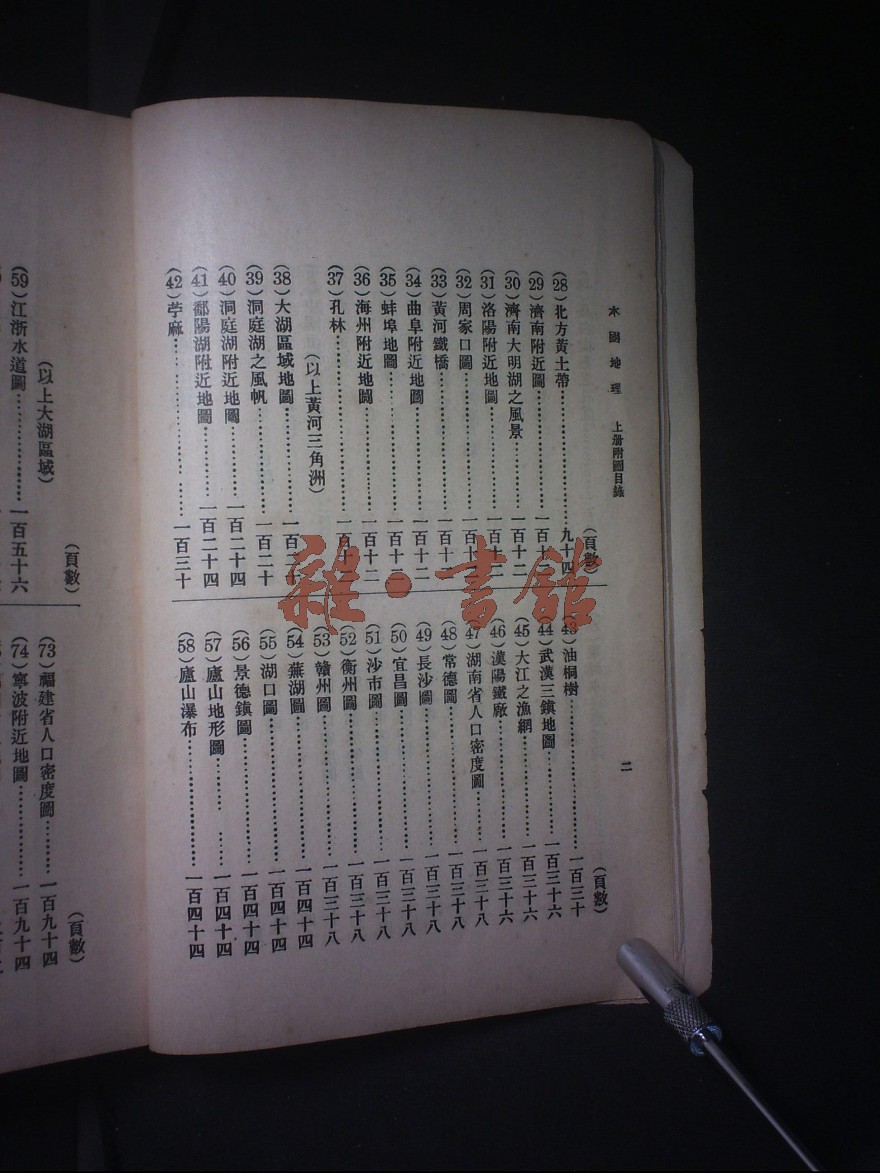 本國地理 上册附圖目錄
二
(頁數)
(28)北方黃土帶……九十四
(29)濟南附近圖……一百十
(30)濟南大明湖之風景……一百十二
(31)洛陽附近地圖……一百十二
(32)周家口圖……一百十二
(33)黃河鐵橋……一百十二
(34)曲阜附近地圖……一百十二
(35)蚌埠地圖……一百十二
(36)海州附近地圖……一百十二
(37)孔林……一百十
(以上黃河三角洲)
(38)大湖區域地圖……一百二十
(39)洞庭湖之風帆……一百二十
(40)洞庭湖附近地圖……一百二十四
(41)鄱陽湖附近地圖……一百二十四
(42)苧麻……一百三十
(頁數)
(43)油桐樹……一百三十
(44)武漢三鎭地圖……一百三十六
(45)大江之漁網……一百三十六
(46)漢陽鐵廠……一百三十六
(47)湖南省人口密度圖……一百三十八
(48)常德圖……一百三十八
(49)長沙圖……一百三十八
(50)宜昌圖……一百三十八
(51)沙市圖……一百三十八
(52)衡州圖……一百三十八
(53)贛州圖……一百三十八
(54)蕪湖圖……一百四十四
(55)湖口圖……一百四十四
(56)景德鎭圖……一百四十四
(57)廬山地形圖……一百四十四
(58)廬山瀑布……一百四十四
(頁數)
(以上大湖區域)
(59)江浙水道圖……一百五十六
(頁數)
(73)福建省人口密度圖……一百九十四
(74)寧波附近地圖……一百九十四
雜·書館